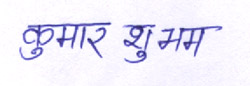 कुमार शुभम